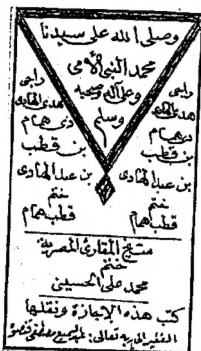 وصلى الله على سيدنا
محمد النبي الأمي
وعلى آله وصحبه
وسلم
راجي
هدى الهادي
ذي همام
بن قطب
بن عبد الهادي
ختم
قطب همام
راجي
هدى الهادي
ذي همام
بن قطب
بن عبد الهادي
ختم
قطب همام
شيخ المقارئ المصرية
ختم
محمد على الحسيني
كتب هذه الإجازة ونقلها
الفقير إلى ربه تعالى: